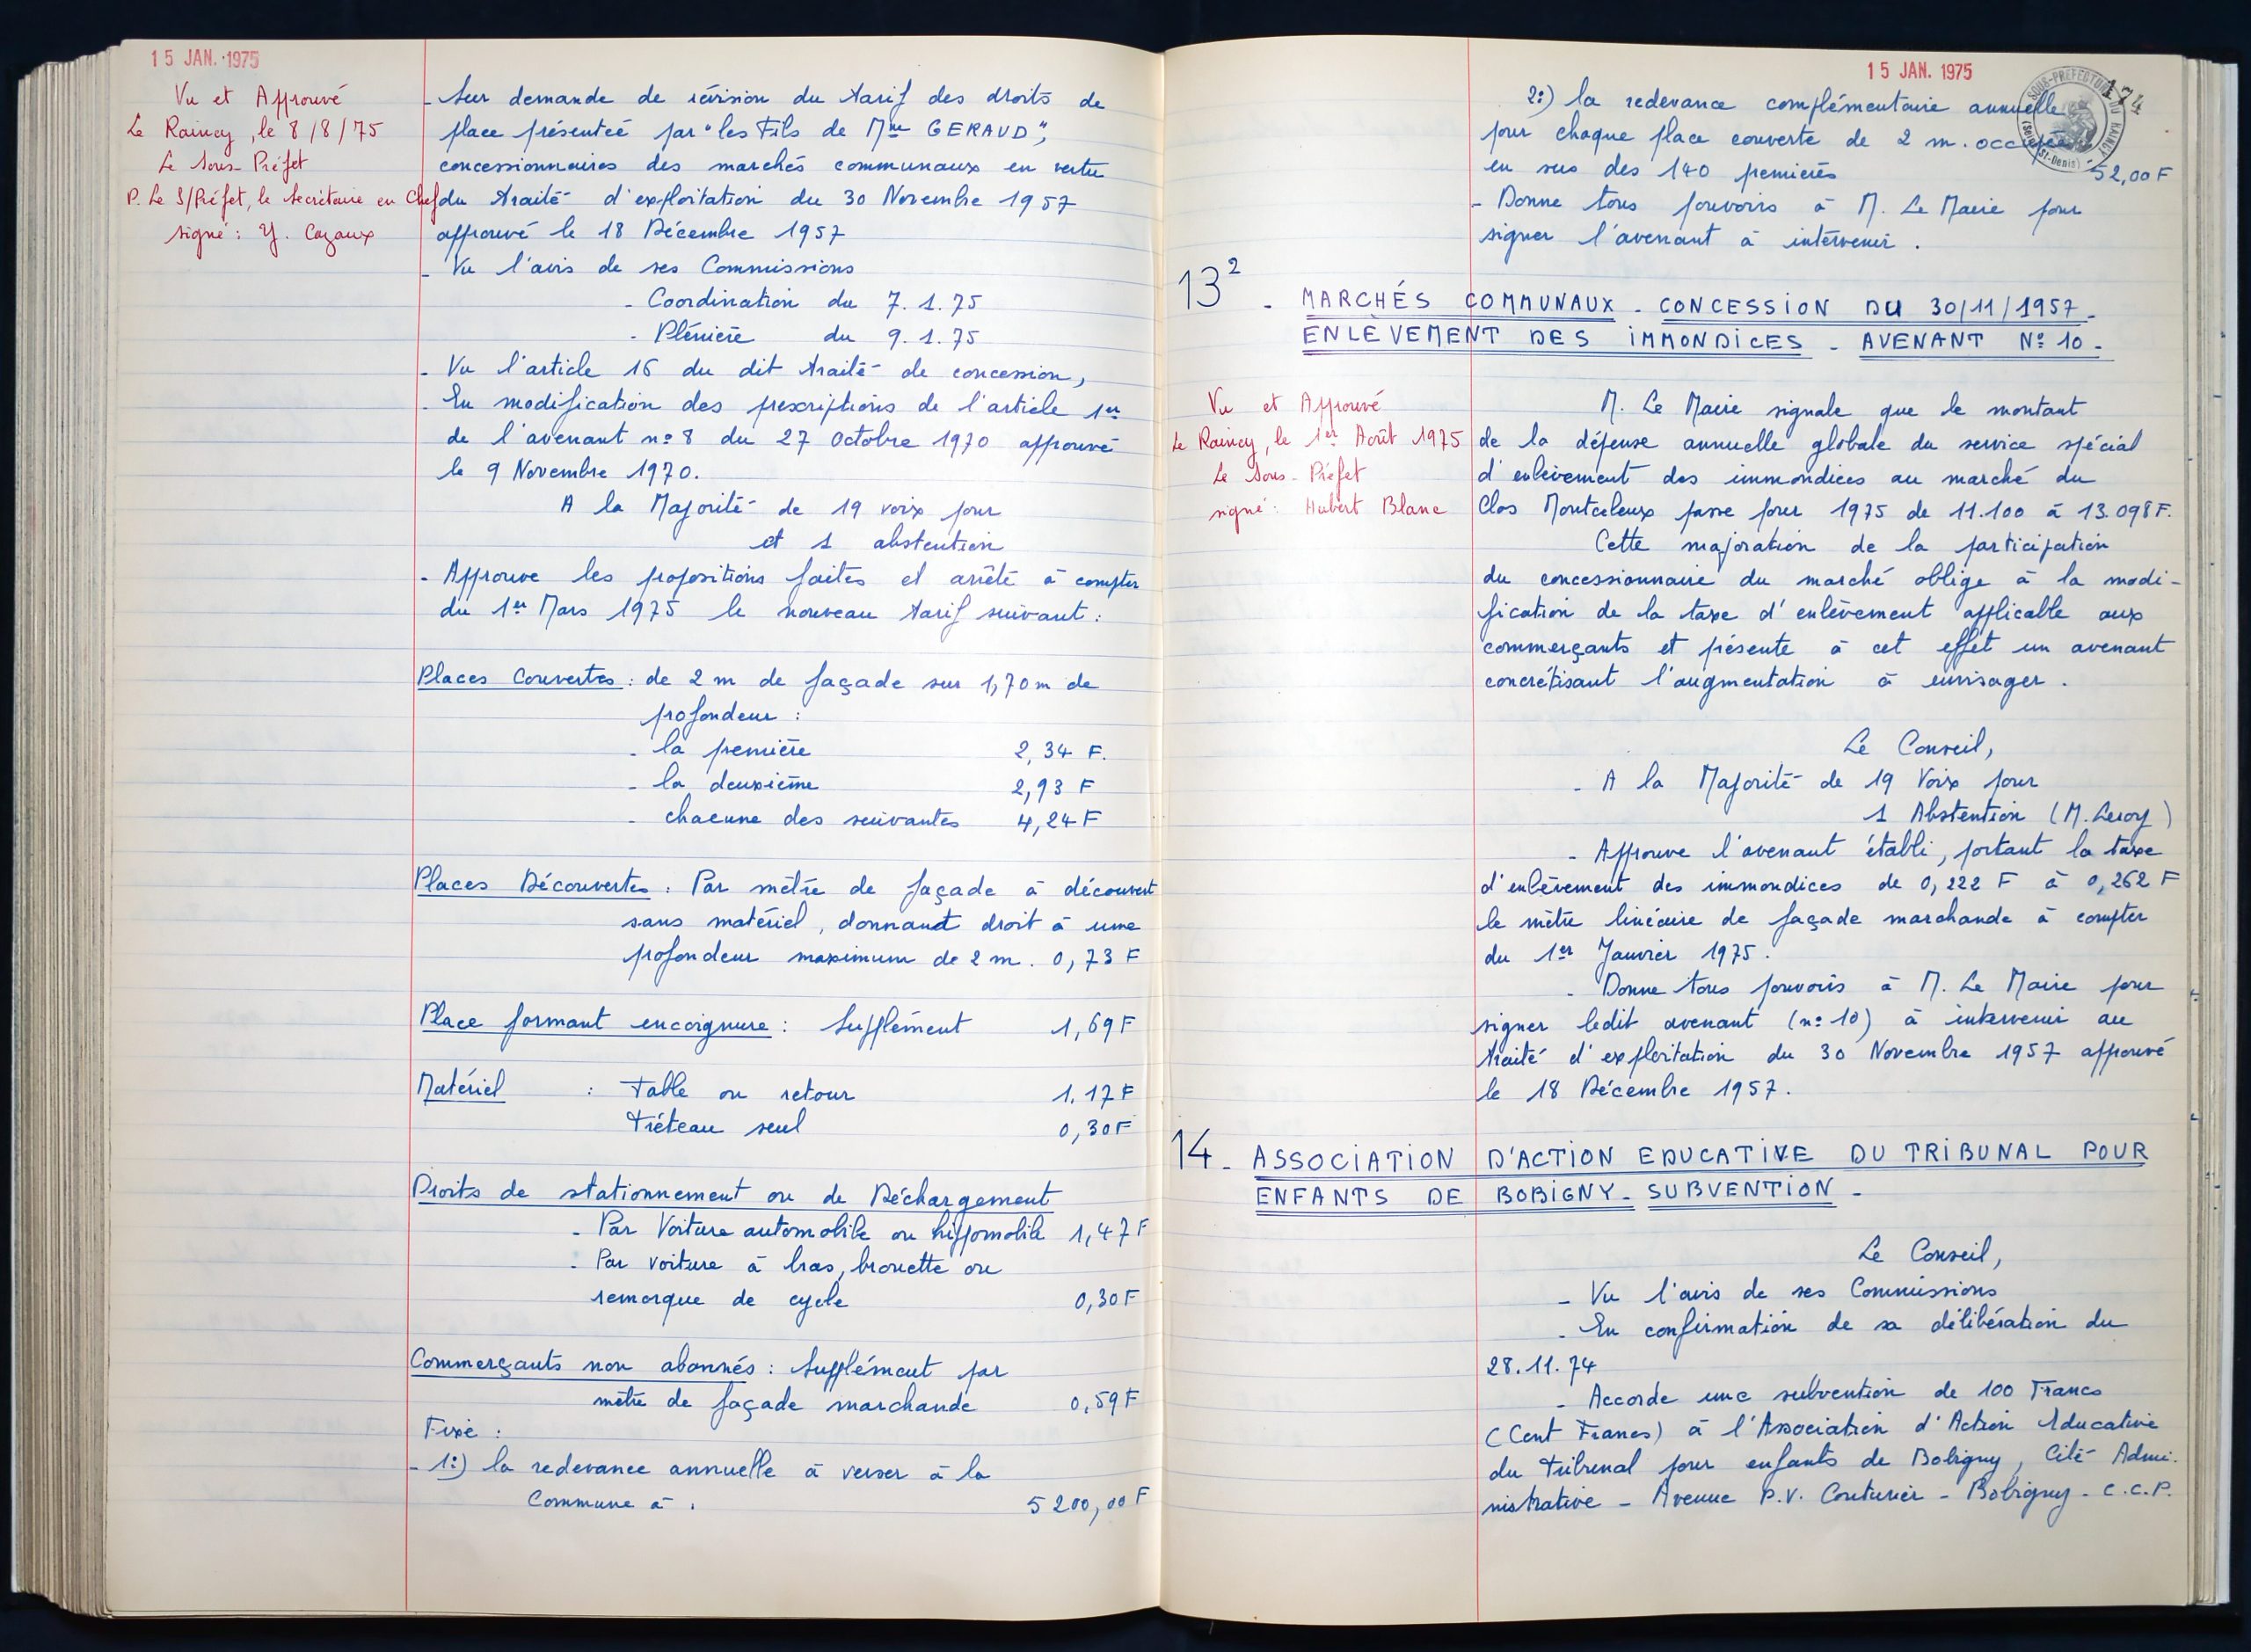 15 JAN. 1975
Vu et Approuvé
Le Raincy, le 8/8/75
Le Sous-Préfet
P. Le S/Préfet, le Secrétaire en Chef
signé : Y. Cazaux
- Sur demande de révision du tarif des droits de
place présenteé par "les Fils de Mme GERAUD",
concessionnaires des marchés communaux en vertu
du traité d'exploitation du 30 Novembre 1957
approuvé le 18 Décembre 1957
- Vu l'avis de ses Commissions
- Coordination du 7.1.75
- Plénière du 9.1.75
- Vu l'article 16 du dit traité de concession,
- En modification des prescriptions de l'article 1er
de l'avenant n° 8 du 27 Octobre 1970 approuvé
le 9 Novembre 1970.
A la Majorité de 19 voix pour
et 1 abstention
- Approuve les propositions faites et arrête à compter
du 1er Mars 1975 le nouveau tarif suivant :
Places Couvertes : de 2 m de façade sur 1,70 m de
profondeur :
- la première 2,34 F.
- la deuxième 2,93 F
- chacune des suivantes 4,24 F
Places Découvertes : Par mètre de façade à découvert
sans matériel, donnant droit à une
profondeur maximum de 2 m. 0,73 F
Place formant encoignure : Supplément 1,69 F
Matériel : Table ou retour 1.17 F
Tréteau seul 0,30 F
Droits de stationnement ou de Déchargement
- Par Voiture automobile ou hippomobile 1,47 F
- Par voiture à bras, brouette ou
remorque de cycle 0,30 F
Commerçants non abonnés : Supplément par
mètre de façade marchande 0,59 F
Fixe :
- 1°) la redevance annuelle à verser à la
Commune à . 5 200,00 F
15 JAN. 1975
SOUS-PREFECTURE DU RAINCY
(Seine-St-Denis)
174
2°) la redevance complémentaire annuelle
pour chaque place couverte de 2 m. occupée
en sus des 140 premières 52,00 F
- Donne tous pouvoirs à M. Le Maire pour
signer l'avenant à intervenir .
13² - MARCHÉS COMMUNAUX - CONCESSION DU 30/11/1957 -
ENLÈVEMENT DES IMMONDICES - AVENANT N° 10 -
Vu et Approuvé
Le Raincy, le 1er Août 1975
Le Sous-Préfet
signé : Hubert Blanc
M. Le Maire signale que le montant
de la dépense annuelle globale du service spécial
d'enlèvement des immondices au marché du
Clos Montceleux passe pour 1975 de 11.100 à 13.098 F.
Cette majoration de la participation
du concessionnaire du marché oblige à la modi-
fication de la taxe d'enlèvement applicable aux
commerçants et présente à cet effet un avenant
concrétisant l'augmentation à envisager .
Le Conseil,
- A la Majorité de 19 Voix pour
1 Abstention (M. Leroy)
- Approuve l'avenant établi, portant la taxe
d'enlèvement des immondices de 0,222 F à 0,262 F
le mètre linéaire de façade marchande à compter
du 1er Janvier 1975.
- Donne tous pouvoirs à M. Le Maire pour
signer ledit avenant (n° 10) à intervenir au
traité d'exploitation du 30 Novembre 1957 approuvé
le 18 Décembre 1957.
14 - ASSOCIATION D'ACTION EDUCATIVE DU TRIBUNAL POUR
ENFANTS DE BOBIGNY - SUBVENTION -
Le Conseil,
- Vu l'avis de ses Commissions
- En confirmation de sa délibération du
28.11.74
- Accorde une subvention de 100 Francs
(Cent Francs) à l'Association d'Action Educative
du Tribunal pour enfants de Bobigny, Cité Admi-
nistrative - Avenue P.V. Couturier - Bobigny - C.C.P.